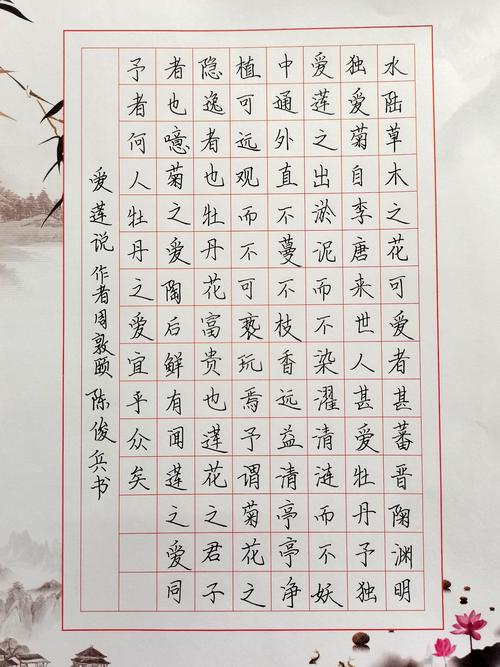 水陆草木之花可爱者甚蕃晋陶渊明
独爱菊自李唐来世人甚爱牡丹予独
爱莲之出淤泥而不染濯清涟而不妖
中通外直不蔓不枝香远益清亭亭净
植可远观而不可亵玩焉予谓菊花之
隐逸者也牡丹花富贵也莲花之君子
者也噫菊之爱陶后鲜有闻莲之爱同
予者何人牡丹之爱宜乎众矣
爱莲说 作者周敦颐 陈俊兵书